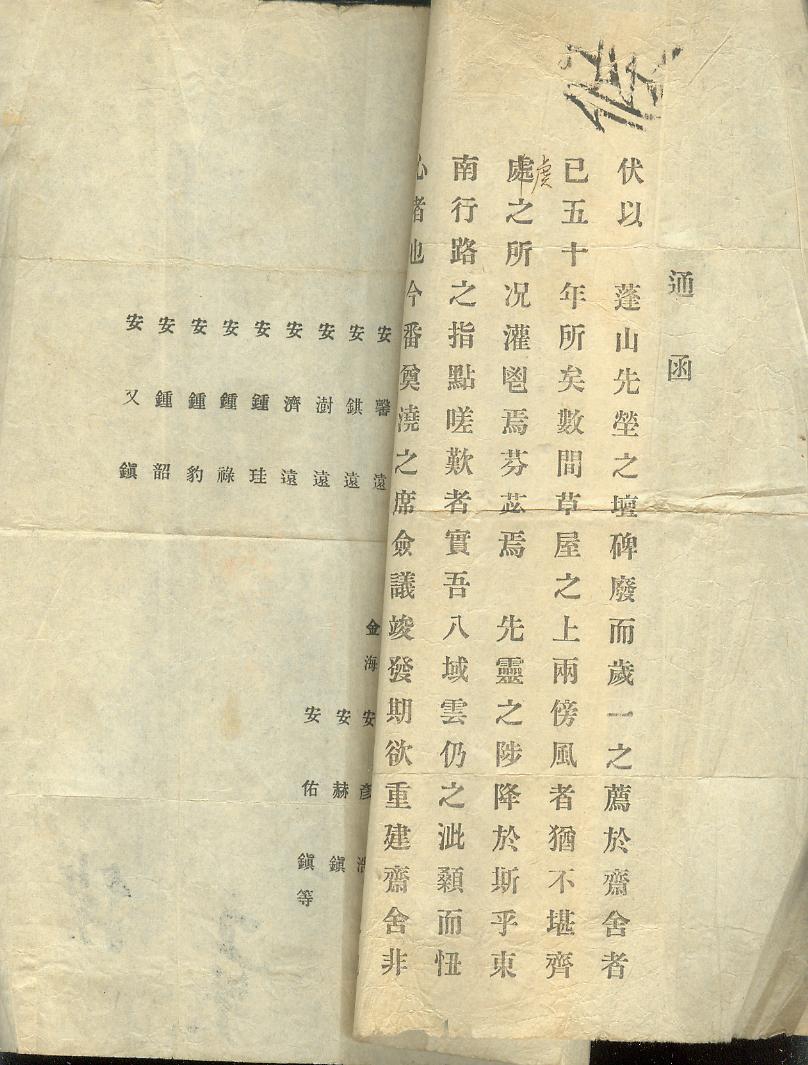 通函
伏以 蓬山先塋之壇碑廢而歲一之薦於齋舍者
已五十年所矣數間草屋之上雨傍風者猶不堪齊
處虔之所况灌鬯焉芬苾焉 先靈之陟降於斯乎東
南行路之指點嗟歎者實吾八域雲仍之泚顙而忸
心者也今番奠澆之席僉議竣發期欲重建齋舍非
安馨遠
安鉷遠
安澍遠
安濟遠
安鍾珪
安鍾祿
安鍾豹
安鍾韶
安又鎭
金海
安彦浩
安赫鎭
安佑鎭等